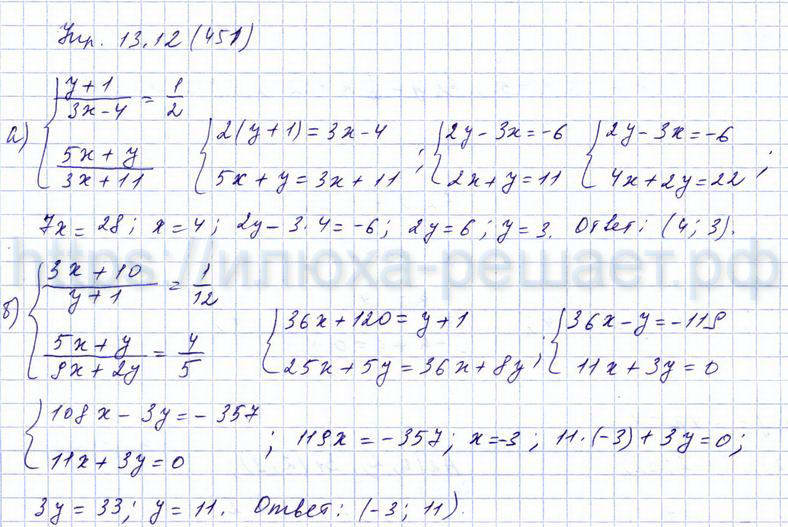 Упр. 13.12 (451)
а) { (y+1)/(3x-4) = 1/2
(5x+y)/(3x+11)
{ 2(y+1)=3x-4
5x+y=3x+11 ;
{ 2y-3x=-6
2x+y=11
{ 2y-3x=-6
4x+2y=22 ;
7x=28; x=4; 2y-3·4=-6; 2y=6; y=3. Ответ: (4; 3).
https://илюха-решает.рф
б) { (3x+10)/(y+1) = 1/12
(5x+y)/(9x+2y) = 4/5
{ 36x+120=y+1
25x+5y=36x+8y ;
{ 36x-y=-119
11x+3y=0
{ 108x-3y=-357
11x+3y=0 ;
119x=-357; x=-3; 11·(-3)+3y=0;
3y=33; y=11. Ответ: (-3; 11).